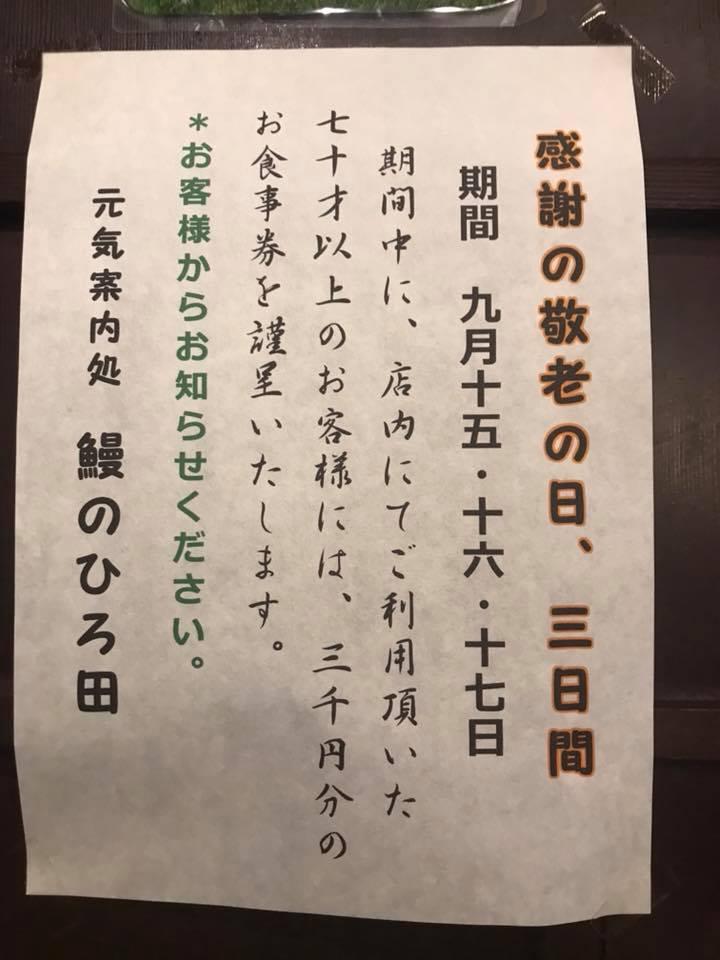 感謝の敬老の日、三日間
期間　九月十五・十六・十七日
期間中に、店内にてご利用頂いた
七十才以上のお客様には、三千円分の
お食事券を謹呈いたします。
*お客様からお知らせください。
元気案内処　鰻のひろ田